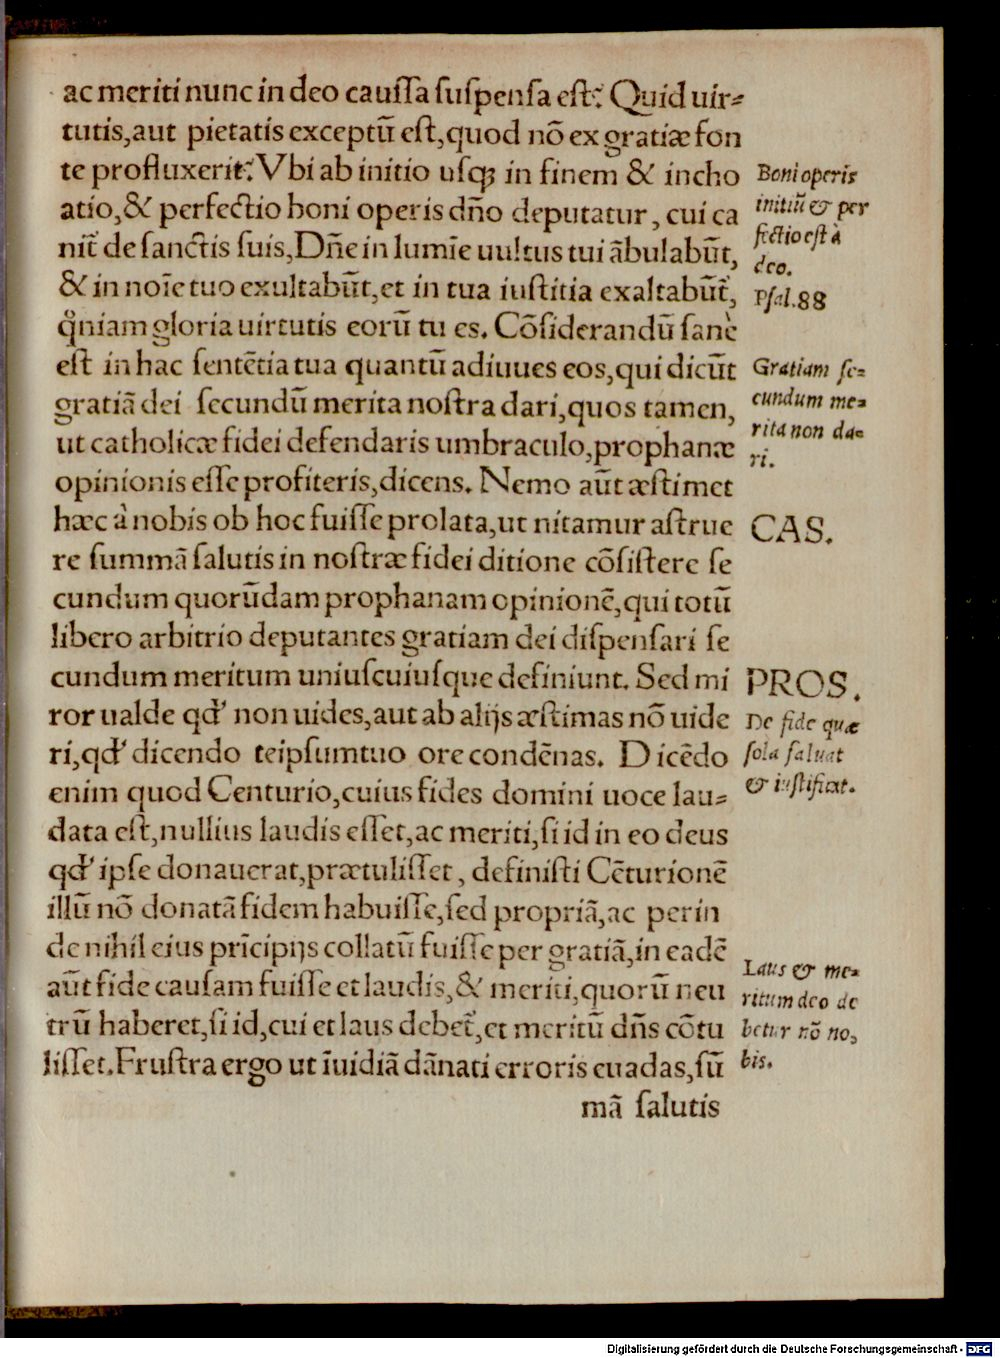 ac meriti nunc in deo caussa suspensa est? Quid uir-
tutis, aut pietatis exceptū est, quod nō ex gratiæ fon
te profluxerit? Vbi ab initio usq; in finem & incho
atio, & perfectio boni operis dño deputatur, cui ca
nit̃ de sanctis suis, Dñe in lumīe uultus tui ābulabūt,
& in noīe tuo exultabūt, et in tua iustitia exaltabūt̃,
q̃niam gloria uirtutis eorū tu es. Cōsiderandū sanè
est in hac sentētia tua quantū adiuues eos, qui dicūt
gratiā dei secundū merita nostra dari, quos tamen,
ut catholicæ fidei defendaris umbraculo, prophanæ
opinionis esse profiteris, dicens. Nemo aūt æstimet
hæc à nobis ob hoc fuisse prolata, ut nitamur astrue
re summā salutis in nostræ fidei ditione cōsistere se
cundum quorūdam prophanam opinionē, qui totū
libero arbitrio deputantes gratiam dei dispensari se
cundum meritum uniuscuiusque definiunt. Sed mi
ror ualde qd' non uides, aut ab alijs æstimas nō uide
ri, qd' dicendo teipsum tuo ore condēnas. Dicēdo
enim quod Centurio, cuius fides domini uoce lau-
data est, nullius laudis esset, ac meriti, si id in eo deus
qd' ipse donauerat, prætulisset, definisti Cēturionē
illū nō donatā fidem habuisse, sed propriā, ac perin
de nihil eius prīcipijs collatū fuisse per gratiā, in eadē
aūt fide causam fuisse et laudis, & meriti, quorū neu
trū haberet, si id, cui et laus debet̃, et meritū dñs cōtu
lisset. Frustra ergo ut īuidiā dānati erroris euadas, sū
mā salutis
Boni operis
initiū & per
fectio est à
deo.
Psal.88
Gratiam se-
cundum me-
rita non da-
ri.
CAS.
PROS.
De fide quæ
sola saluat
& iustificat.
Laus & me-
ritum deo de
betur nō no,
bis.
Digitalisierung gefördert durch die Deutsche Forschungsgemeinschaft - DFG